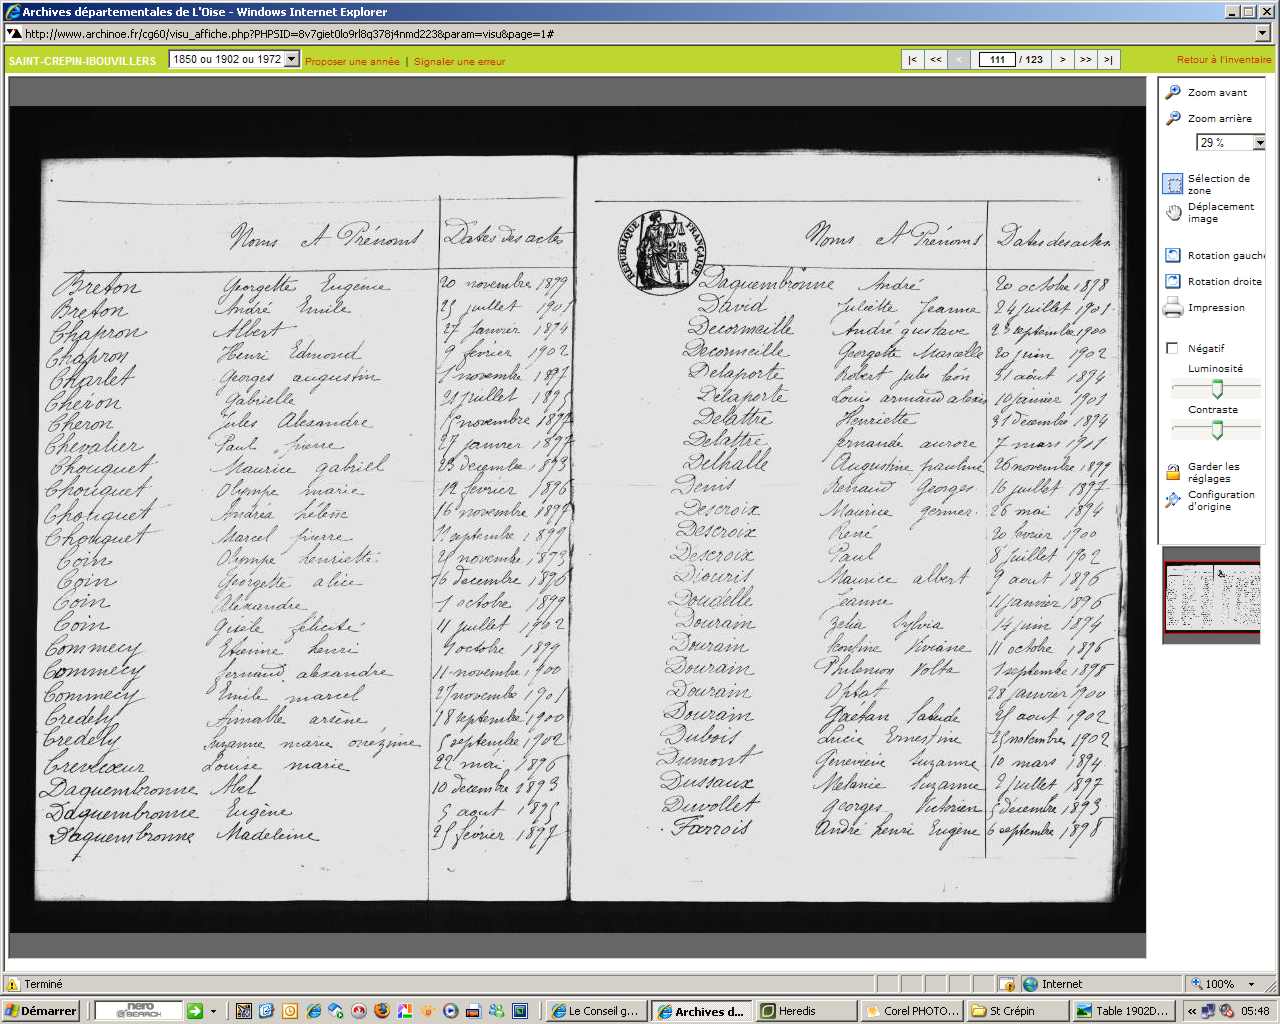 Archives départementales de L'Oise - Windows Internet Explorer
http://www.archinoe.fr/cg60/visu_affiche.php?PHPSID=8v7giet0lo9rl8q378j4nmd223&param=visu&page=1#
SAINT-CREPIN-IBOUVILLERS 1850 ou 1902 ou 1972 Proposer une année | Signaler une erreur |< << < 111 / 123 > >> >| Retour à l'inventaire
Noms et Prénoms Dates des actes
Breton Georgette Eugénie 20 novembre 1899
Breton André Emile 25 juillet 1901
Chapron Albert 27 janvier 1894
Chapron Henri Edmond 9 février 1902
Charlet Georges augustin 1 novembre 1897
Chéron Gabrielle 21 juillet 1895
Cheron Jules Alexandre 15 novembre 1897
Chevalier Paul pierre 27 janvier 1897
Chouquet Maurice gabriel 23 decembre 1893
Chouquet Olympe marie 12 fevrier 1896
Chouquet Andrea hélène 16 novembre 1897
Chouquet Marcel pierre 11 septembre 1899
Coin Olympe henriette 21 novembre 1893
Coin Georgette alice 16 decembre 1896
Coin Alexandre 1 octobre 1899
Coin Gisèle félicité 11 juillet 1902
Commecy Etienne henri 9 octobre 1899
Commecy fernand alexandre 11 novembre 1900
Commecy Emile marcel 27 novembre 1901
Credely Aimable arsène 18 septembre 1900
Credely Suzanne marie onézime 5 septembre 1902
Crevecœur Louise marie 22 mai 1896
Daquembronne Abel 10 decembre 1893
Daquembronne Eugène 5 aout 1895
Daquembronne Madeleine 25 février 1897
RÉPUBLIQUE FRANÇAISE
Noms et Prénoms Dates des actes
Daquembronne André 20 octobre 1898
David Juliette Jeanne 24 juillet 1901
Decormeille André gustave 23 septembre 1900
Decormeille Georgette Marcelle 20 juin 1902
Delaporte Robert Jules léon 31 août 1894
Delaporte Louis armand alexis 10 janvier 1901
Delattre Henriette 31 décembre 1894
Delattre fernande aurore 7 mars 1901
Delhalle Augustine pauline 26 novembre 1899
Denis Renaud Georges 16 juillet 1897
Descroix Maurice germer 26 mai 1894
Descroix René 20 février 1900
Descroix Paul 8 juillet 1902
Diouris Maurice albert 9 aout 1896
Doudelle Jeanne 11 janvier 1896
Dourain Zelia Sylvia 14 juin 1894
Dourain Léontine Viviane 11 octobre 1896
Dourain Philemon Volta 1 septembre 1898
Dourain Optat 28 janvier 1900
Dourain Gaétan 25 aout 1902
Dubois Lucie Ernestine 25 novembre 1902
Dumont Geneviève Suzanne 10 mars 1894
Dussaux Melanie Suzanne 2 juillet 1897
Duvollet Georges Victorien 5 décembre 1893
Farrois André henri Eugène 6 septembre 1898
Zoom avant
Zoom arrière
29 %
Sélection de
zone
Déplacement
image
Rotation gauche
Rotation droite
Impression
Négatif
Luminosité
Contraste
Garder les
réglages
Configuration
d'origine
Terminé Internet 100%
Démarrer nero SEARCH Le Conseil g... Archives d... Heredis Corel PHOTO... St Crépin Table 1902D... « 05:48